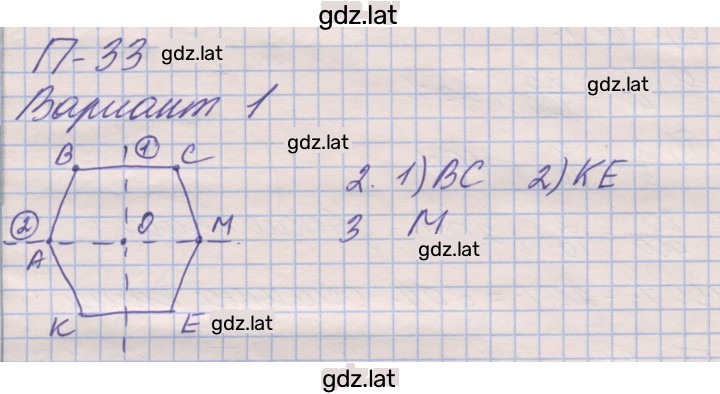 gdz.lat
П-33 gdz.lat
gdz.lat
Вариант 1
gdz.lat
B ① C
2. 1) BC 2) KE
② O M
3 M
A
gdz.lat
K E gdz.lat
gdz.lat